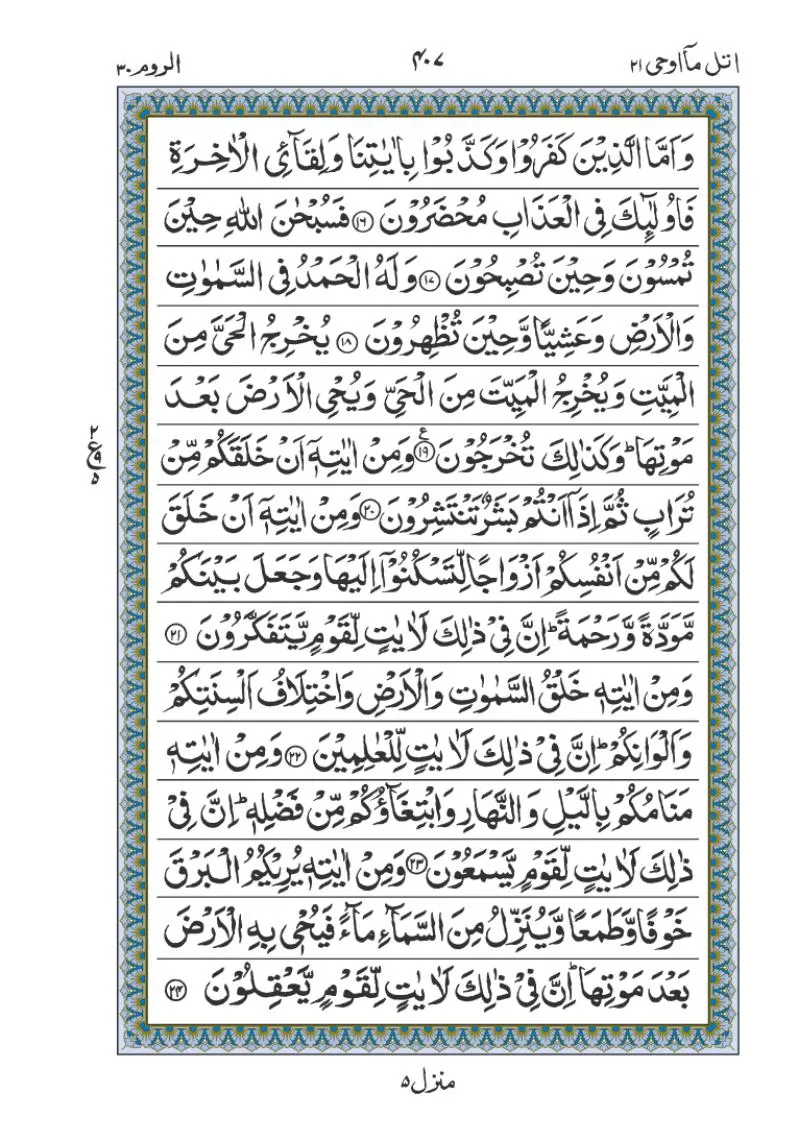 اتل مآاوحی ۲۱
۴۰۷
الروم ۳۰
وَاَمَّا الَّذِیْنَ كَفَرُوْا وَكَذَّبُوْا بِاٰیٰتِنَا وَلِقَآئِ الْاٰخِرَةِ
فَاُولٰٓئِكَ فِی الْعَذَابِ مُحْضَرُوْنَ ۝۱۶ فَسُبْحٰنَ اللّٰهِ حِیْنَ
تُمْسُوْنَ وَحِیْنَ تُصْبِحُوْنَ ۝۱۷ وَلَهُ الْحَمْدُ فِی السَّمٰوٰتِ
وَالْاَرْضِ وَعَشِیًّا وَّحِیْنَ تُظْهِرُوْنَ ۝۱۸ یُخْرِجُ الْحَیَّ مِنَ
الْمَیِّتِ وَیُخْرِجُ الْمَیِّتَ مِنَ الْحَیِّ وَیُحْیِ الْاَرْضَ بَعْدَ
مَوْتِهَا ؕ وَكَذٰلِكَ تُخْرَجُوْنَ ۝۱۹ع وَمِنْ اٰیٰتِهٖۤ اَنْ خَلَقَكُمْ مِّنْ
تُرَابٍ ثُمَّ اِذَاۤ اَنْتُمْ بَشَرٌ تَنْتَشِرُوْنَ ۝۲۰ وَمِنْ اٰیٰتِهٖۤ اَنْ خَلَقَ
لَكُمْ مِّنْ اَنْفُسِكُمْ اَزْوَاجًا لِّتَسْكُنُوْۤا اِلَیْهَا وَجَعَلَ بَیْنَكُمْ
مَّوَدَّةً وَّرَحْمَةً ؕ اِنَّ فِیْ ذٰلِكَ لَاٰیٰتٍ لِّقَوْمٍ یَّتَفَكَّرُوْنَ ۝۲۱
وَمِنْ اٰیٰتِهٖ خَلْقُ السَّمٰوٰتِ وَالْاَرْضِ وَاخْتِلَافُ اَلْسِنَتِكُمْ
وَاَلْوَانِكُمْ ؕ اِنَّ فِیْ ذٰلِكَ لَاٰیٰتٍ لِّلْعٰلِمِیْنَ ۝۲۲ وَمِنْ اٰیٰتِهٖ
مَنَامُكُمْ بِالَّیْلِ وَالنَّهَارِ وَابْتِغَآؤُكُمْ مِّنْ فَضْلِهٖ ؕ اِنَّ فِیْ
ذٰلِكَ لَاٰیٰتٍ لِّقَوْمٍ یَّسْمَعُوْنَ ۝۲۳ وَمِنْ اٰیٰتِهٖ یُرِیْكُمُ الْبَرْقَ
خَوْفًا وَّطَمَعًا وَّیُنَزِّلُ مِنَ السَّمَآءِ مَآءً فَیُحْیٖ بِهِ الْاَرْضَ
بَعْدَ مَوْتِهَا ؕ اِنَّ فِیْ ذٰلِكَ لَاٰیٰتٍ لِّقَوْمٍ یَّعْقِلُوْنَ ۝۲۴
۲ ع ۵
منزل ۵